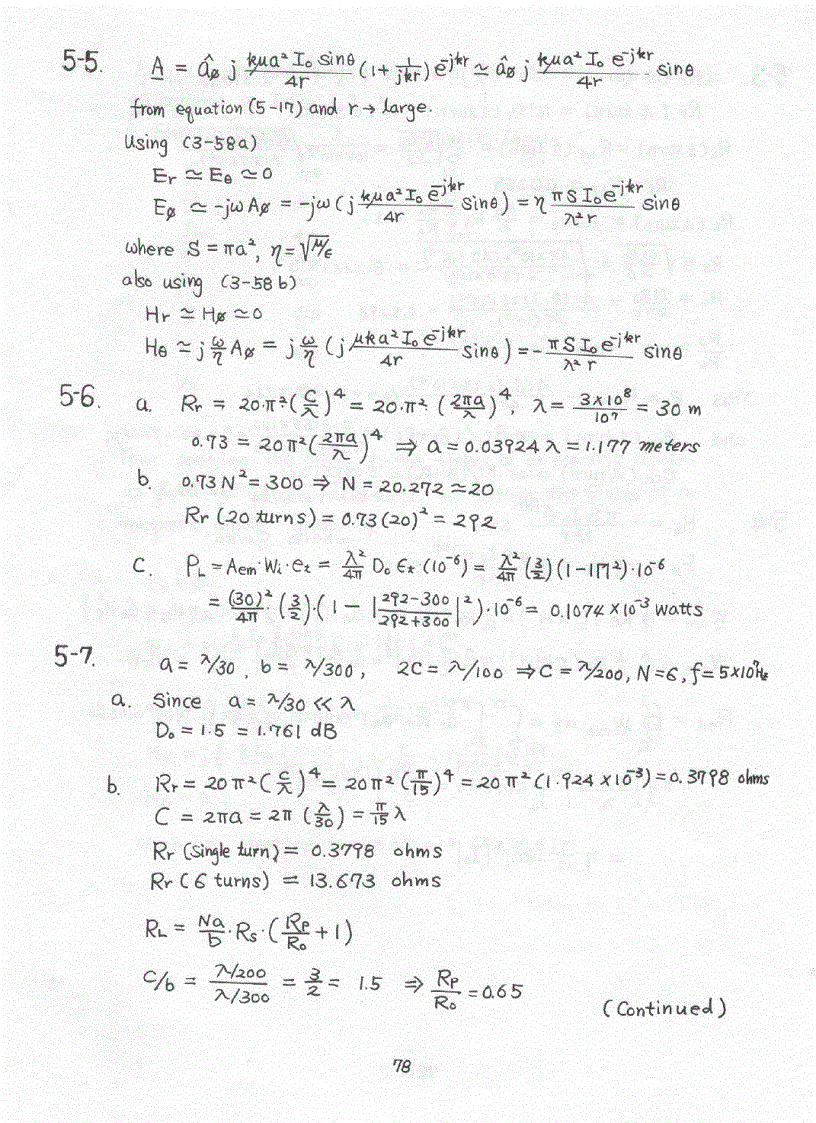 5-5. A = â_ø j kμa² I₀ sinθ / 4r (1 + 1/jkr) e^-jkr ≃ â_ø j kμa² I₀ e^-jkr / 4r sinθ
from equation (5-17) and r → large.
Using (3-58a)
Er ≃ Eθ ≃ 0
Eø ≃ -jω Aø = -jω (j kμa² I₀ e^-jkr / 4r sinθ) = η πS I₀ e^-jkr / λ² r sinθ
where S = πa², η = √μ/ε
also using (3-58b)
Hr ≃ Hø ≃ 0
Hθ ≃ j ω/η Aø = j ω/η (j μka² I₀ e^-jkr / 4r sinθ) = - πS I₀ e^-jkr / λ² r sinθ
5-6. a. Rr = 20·π² (C/λ)⁴ = 20·π² · (2πa/λ)⁴, λ = 3×10⁸ / 10⁷ = 30 m
0.73 = 20π² (2πa/λ)⁴ ⇒ a = 0.03924 λ = 1.177 meters
b. 0.73 N² = 300 ⇒ N = 20.272 ≃ 20
Rr (20 turns) = 0.73 (20)² = 292
C. P_L = Aem · Wi · et = λ²/4π D₀ Et · (10⁻⁶) = λ²/4π (3/2) (1 - |Γ|²) · 10⁻⁶
= (30)²/4π · (3/2) · (1 - |292-300 / 292+300|²) · 10⁻⁶ = 0.1074 × 10⁻³ watts
5-7. a = λ/30, b = λ/300, 2C = λ/100 ⇒ C = λ/200, N = 6, f = 5×10⁷ Hz
a. Since a = λ/30 << λ
D₀ = 1.5 = 1.761 dB
b. Rr = 20π² (C/λ)⁴ = 20π² (π/15)⁴ = 20π² (1.924 × 10⁻³) = 0.3798 ohms
C = 2πa = 2π (λ/30) = π/15 λ
Rr (Single turn) = 0.3798 ohms
Rr (6 turns) = 13.673 ohms
R_L = Na/b · Rs · (Rp/R₀ + 1)
C/b = λ/200 / λ/300 = 3/2 = 1.5 ⇒ Rp/R₀ = 0.65
(Continued)
78